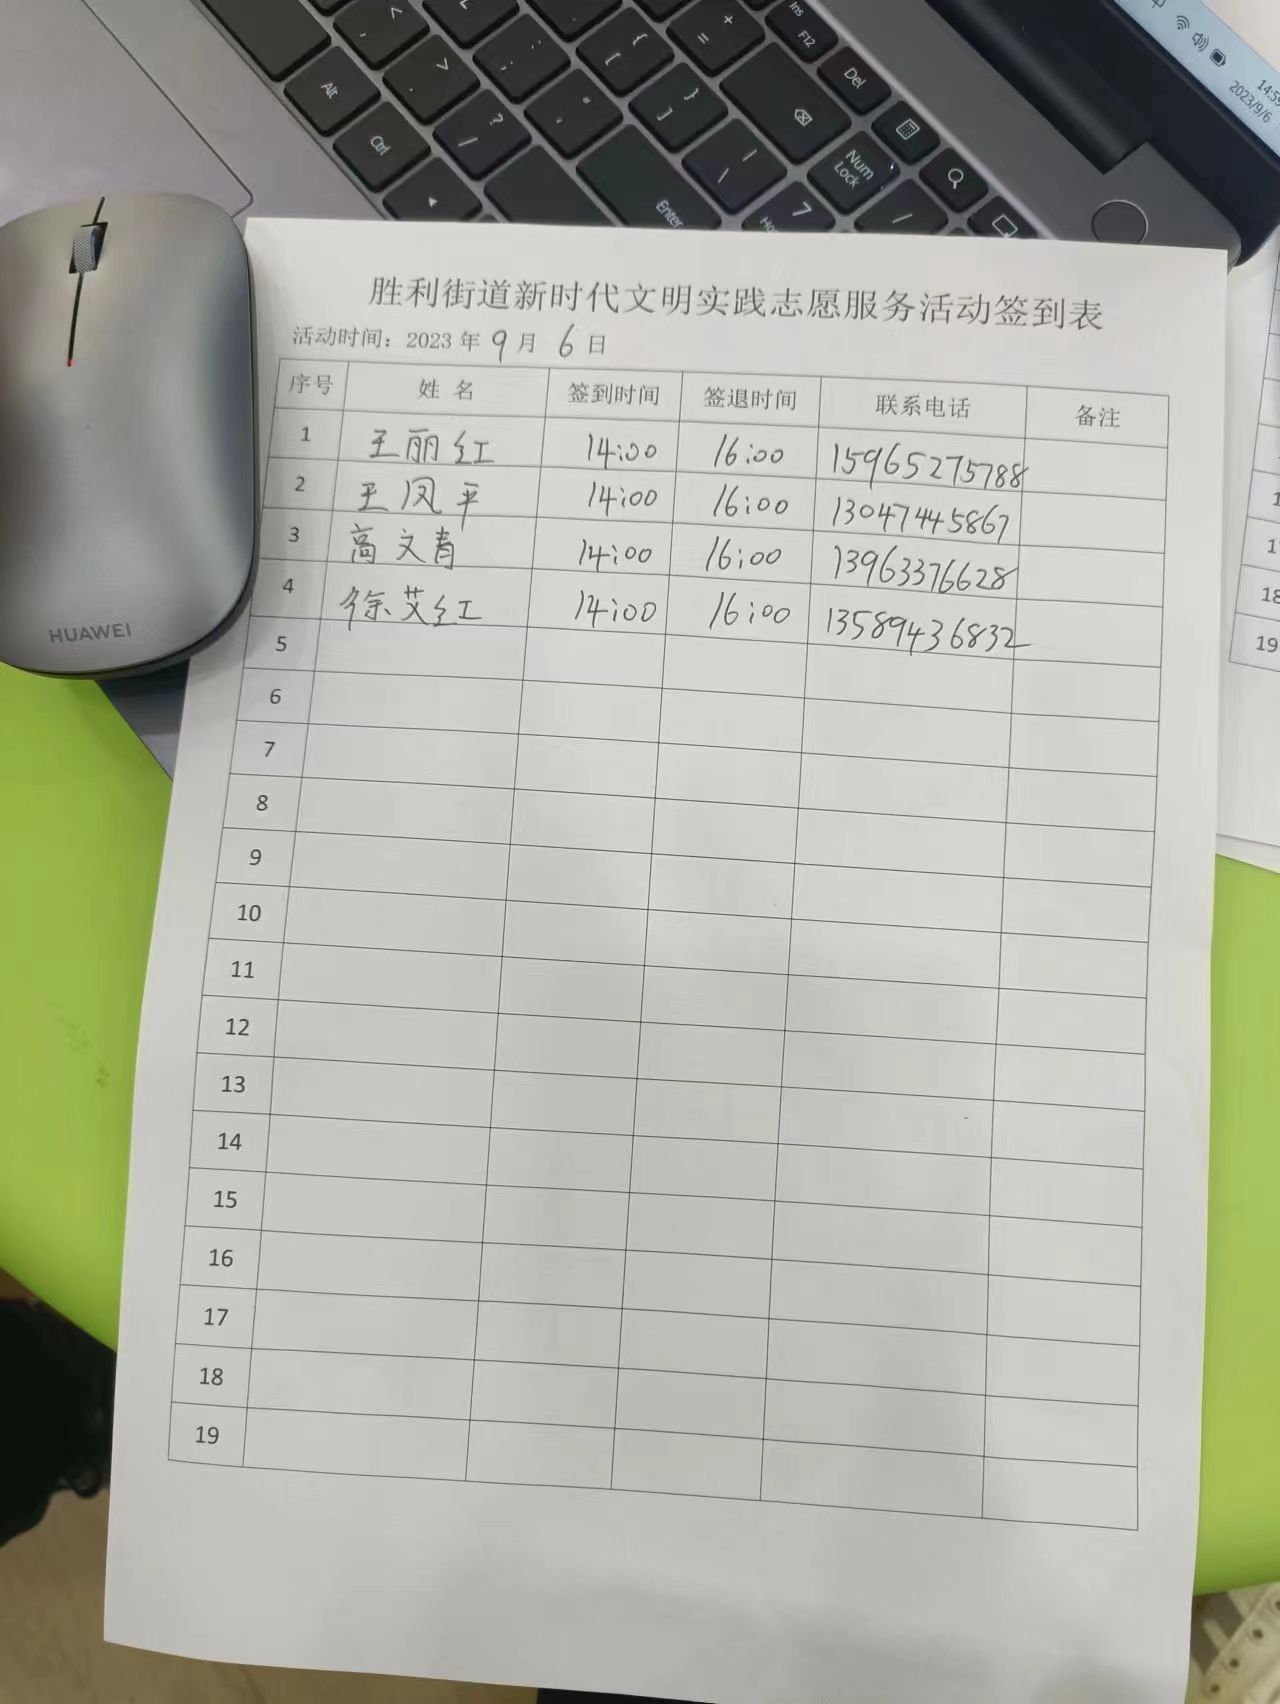 Ins
F12
Del
Alt
Ctrl
Num
Lock
Enter
14:59
2023/9/6
HUAWEI
胜利街道新时代文明实践志愿服务活动签到表
活动时间：2023 年 9 月 6 日
序号 姓 名 签到时间 签退时间 联系电话 备注
1 王丽红 14:00 16:00 15965275788
2 王凤平 14:00 16:00 13047445867
3 高文青 14:00 16:00 13963376628
4 徐艾红 14:00 16:00 13589436832
5
6
7
8
9
10
11
12
13
14
15
16
17
18
19
18
19